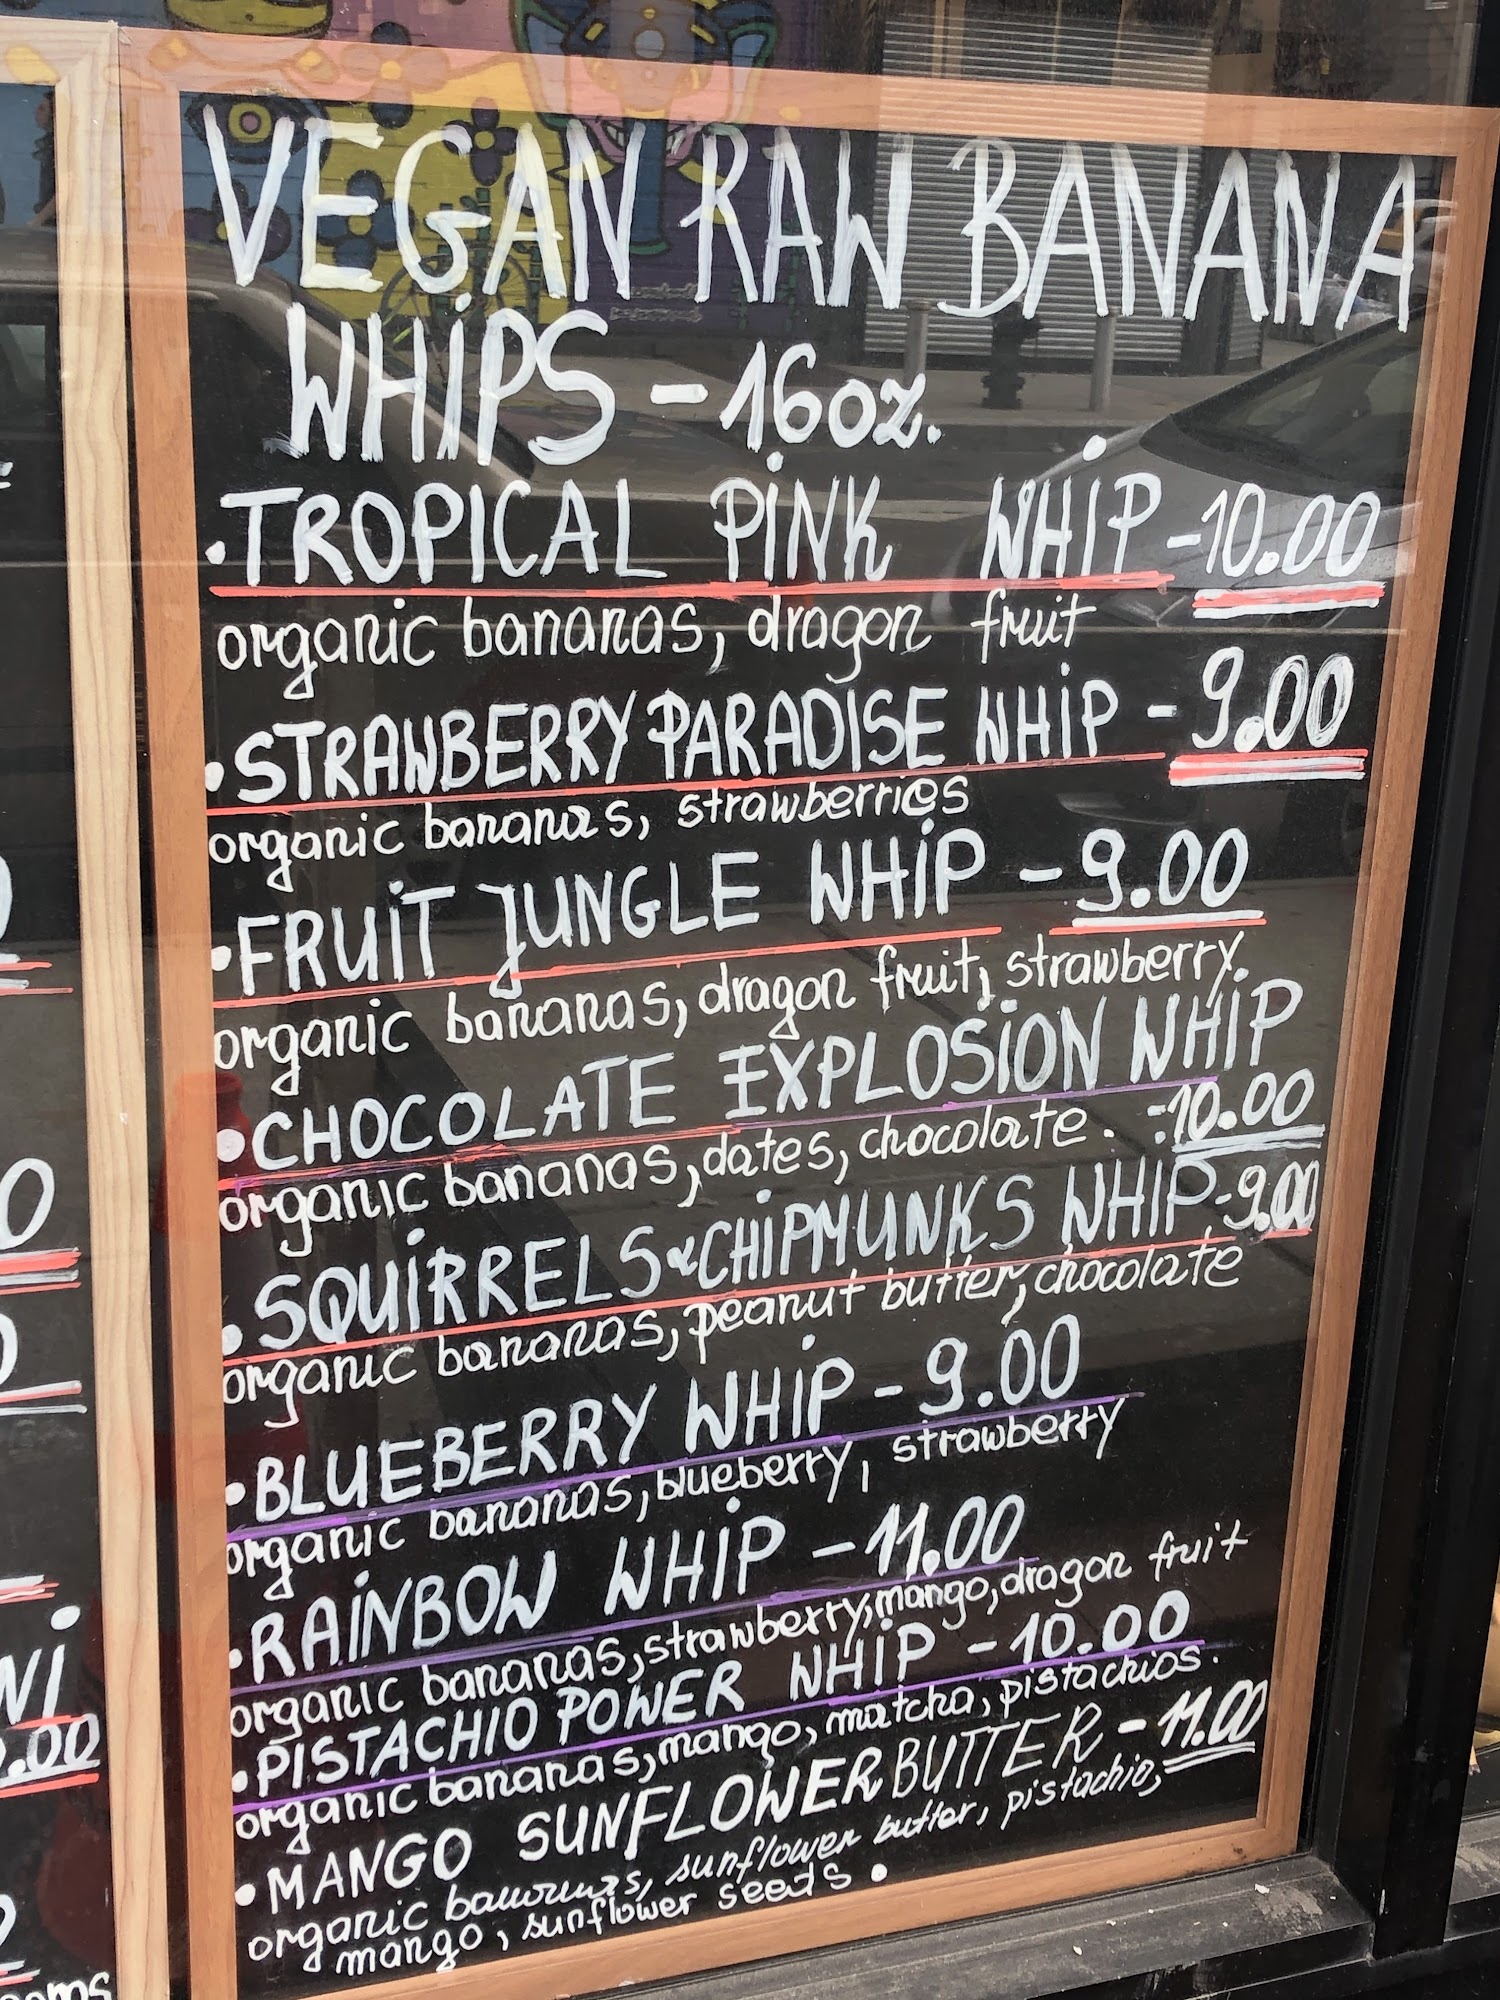 VEGAN RAW BANANA
WHIPS - 16oz.
• TROPICAL PINK WHIP - 10.00
organic bananas, dragon fruit
• STRAWBERRY PARADISE WHIP - 9.00
organic bananas, strawberries
• FRUIT JUNGLE WHIP - 9.00
organic bananas, dragon fruit, strawberry.
• CHOCOLATE EXPLOSION WHIP
organic bananas, dates, chocolate. -10.00
• SQUIRRELS & CHIPMUNKS WHIP - 9.00
organic bananas, peanut butter, chocolate
• BLUEBERRY WHIP - 9.00
organic bananas, blueberry, strawberry
• RAINBOW WHIP - 11.00
organic bananas, strawberry, mango, dragon fruit
• PISTACHIO POWER WHIP - 10.00
organic bananas, mango, matcha, pistachios.
• MANGO SUNFLOWER BUTTER - 11.00
organic bananas, sunflower butter, pistachio,
mango, sunflower seeds.